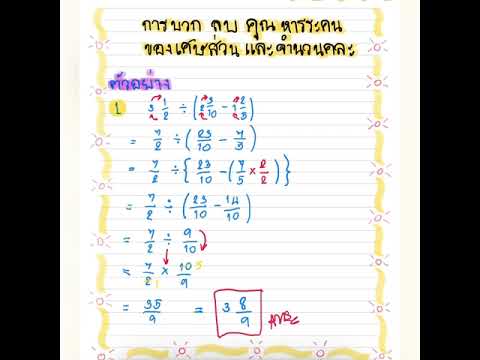 การบวก ลบ คูณ หารระคน
ของเศษส่วน และจำนวนคละ
ตัวอย่าง
1 3 1/2 ÷ (2 3/10 - 1 2/5)
= 7/2 ÷ (23/10 - 7/5)
= 7/2 ÷ {23/10 - (7/5 × 2/2)}
= 7/2 ÷ (23/10 - 14/10)
= 7/2 ÷ 9/10
= 7/2 1 × 10/9 5
= 35/9 = 3 8/9 Ans